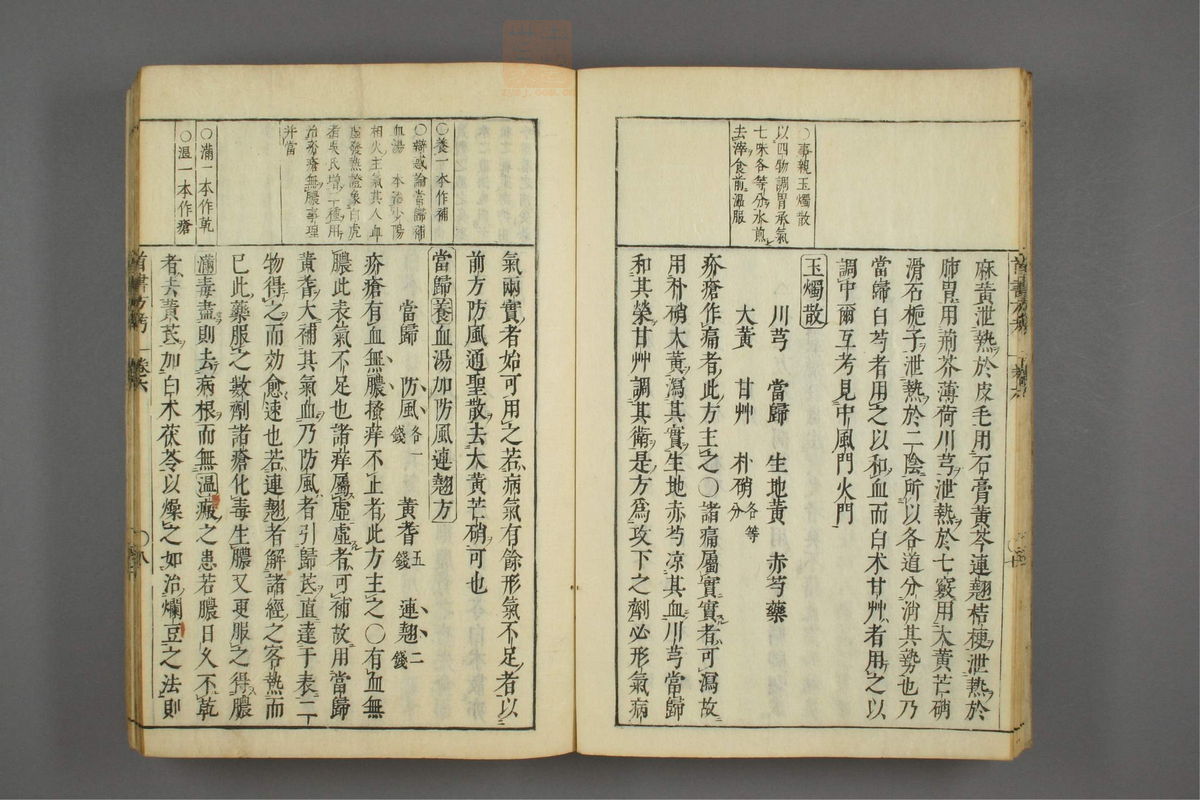 ○事親玉燭散
以四物調胃承氣
七味各等分水煎
去滓食前溫服
麻黃泄熱於皮毛用石膏黃芩連翹桔梗泄熱於
肺胃用荊芥薄荷川芎泄熱於七竅用大黃芒硝
滑石梔子泄熱於二陰所以各道分消其勢也乃
當歸白芍者用之以和血而白术甘艸者用之以
調中爾互考見中風門火門
玉燭散
川芎 當歸 生地黃 赤芍藥
大黃 甘艸 朴硝各等分
疥瘡作痛者此方主之○諸痛屬實實者可瀉故
用朴硝大黃瀉其實生地赤芍凉其血川芎當歸
和其榮甘艸調其衛是方爲攻下之劑必形氣病
○養一本作補
○辯或論當歸補
血湯 本治少陽
相火主氣其人血
虛發熱證象白虎
者吳氏增二種用
治疥瘡無膿事理
并當
○滿一本作乾
○溫一本作瘡
氣兩實者始可用之若病氣有餘形氣不足者以
前方防風通聖散去大黃芒硝可也
當歸養血湯加防風連翹方
當歸 防風各一錢 黃耆五錢 連翹二錢
疥瘡有血無膿搔痒不止者此方主之○有血無
膿此表氣不足也諸痒屬虛虛者可補故用當歸
黃耆大補其氣血乃防風者引歸芪直達于表二
物得之而効愈速也若連翹者解諸經之客熱而
已此藥服之數劑諸瘡化毒生膿又更服之得膿
滿毒盡則去病根而無溫瘢之患若膿日久不乾
者去黃芪加白术茯苓以燥之如治爛豆之法則
卷六